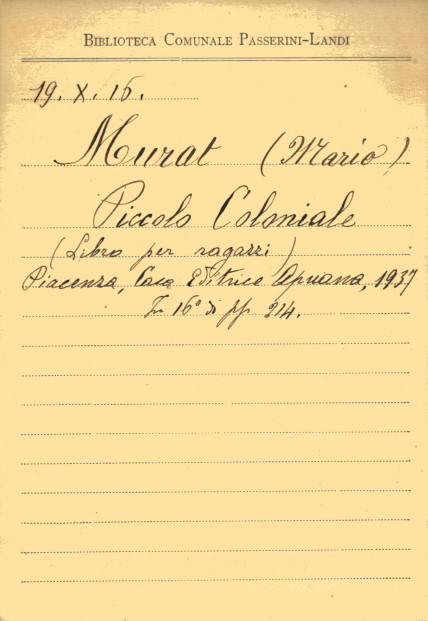 BIBLIOTECA COMUNALE PASSERINI-LANDI
19. X. 16.
Murat (Mario)
Piccolo Coloniale
(Libro per ragazzi)
Piacenza, Casa Editrice Apuana, 1937
In 16° di pp. 214.